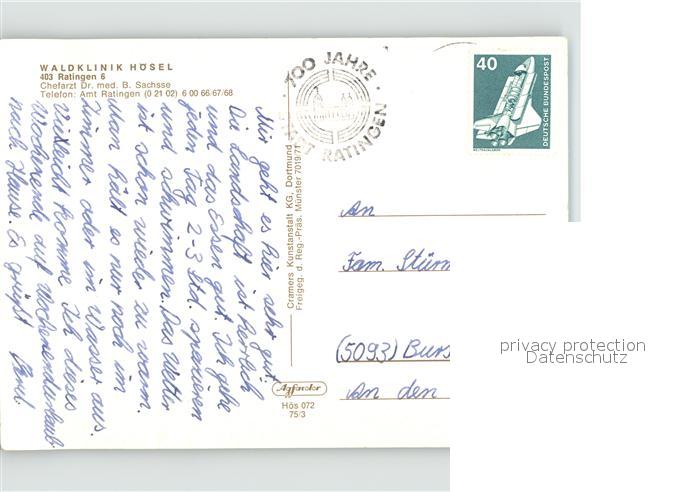 WALDKLINIK HÖSEL
403 Ratingen 6
Chefarzt Dr. med. B. Sachsse
Telefon: Amt Ratingen (0 21 02) 6 00 66/67/68
Mir geht es hier sehr gut.
Die Landschaft ist herrlich
und das Essen gut. Ich gehe
jeden Tag 2-3 Std. spazieren
und schwimmen. Das Wetter
ist schon wieder zu warm.
Man hält es nur noch im
Zimmer oder im Wasser aus.
Vielleicht komme ich dieses
Wochenende auf Wochenendurlaub
nach Hause. Es grüßt
Cramers Kunstanstalt KG, Dortmund
Freigeg. d. Reg.-Präs. Münster 7019/71
Agfacolor
Hös 072
75/3
700 JAHRE
STADT RATINGEN
40
DEUTSCHE BUNDESPOST
An
Fam. Stürm
(5093) Burs
An den
privacy protection
Datenschutz